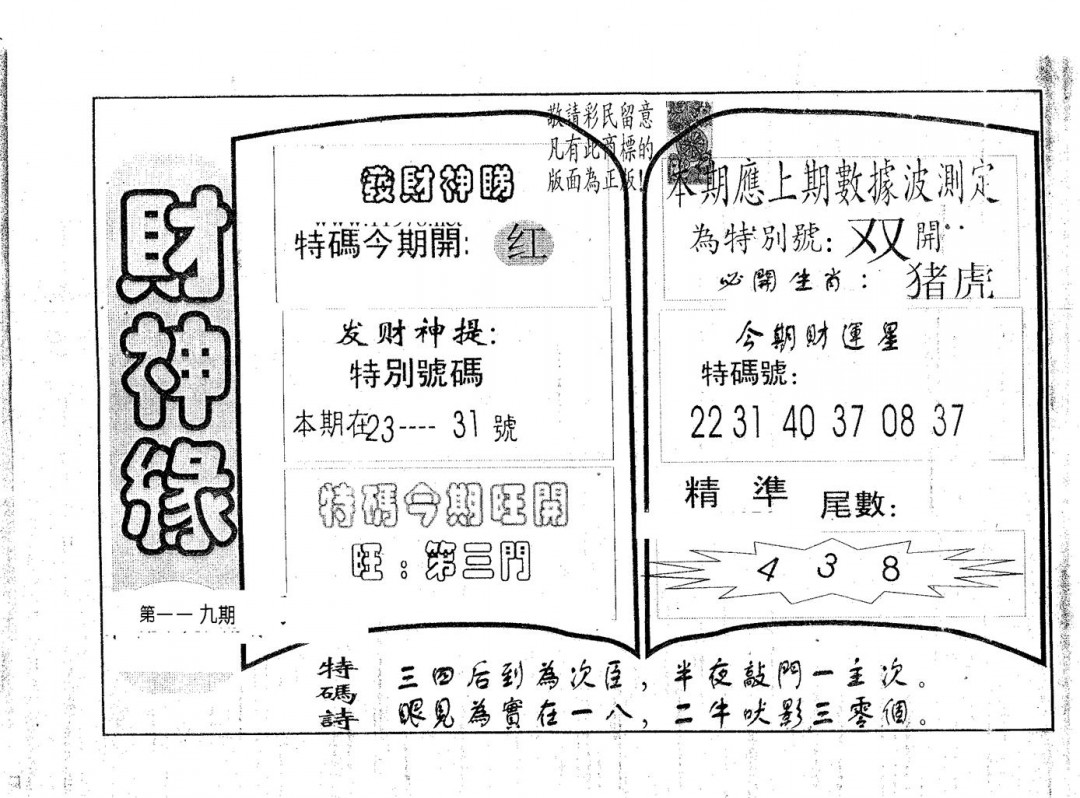 財神緣
第一一九期
敬請彩民留意
凡有此商標的
版面為正版!
發財神睇
特碼今期開: 红
发财神提:
特別號碼
本期在23----31號
特碼今期旺開
旺:第三門
本期應上期數據波測定
為特別號:双開
必開生肖: 猪虎
今期財運星
特碼號:
22 31 40 37 08 37
精準 尾數:
4 3 8
特碼詩
三四后到為次臣,半夜敲門一主次。
眼見為實在一八,二牛吠影三零個。